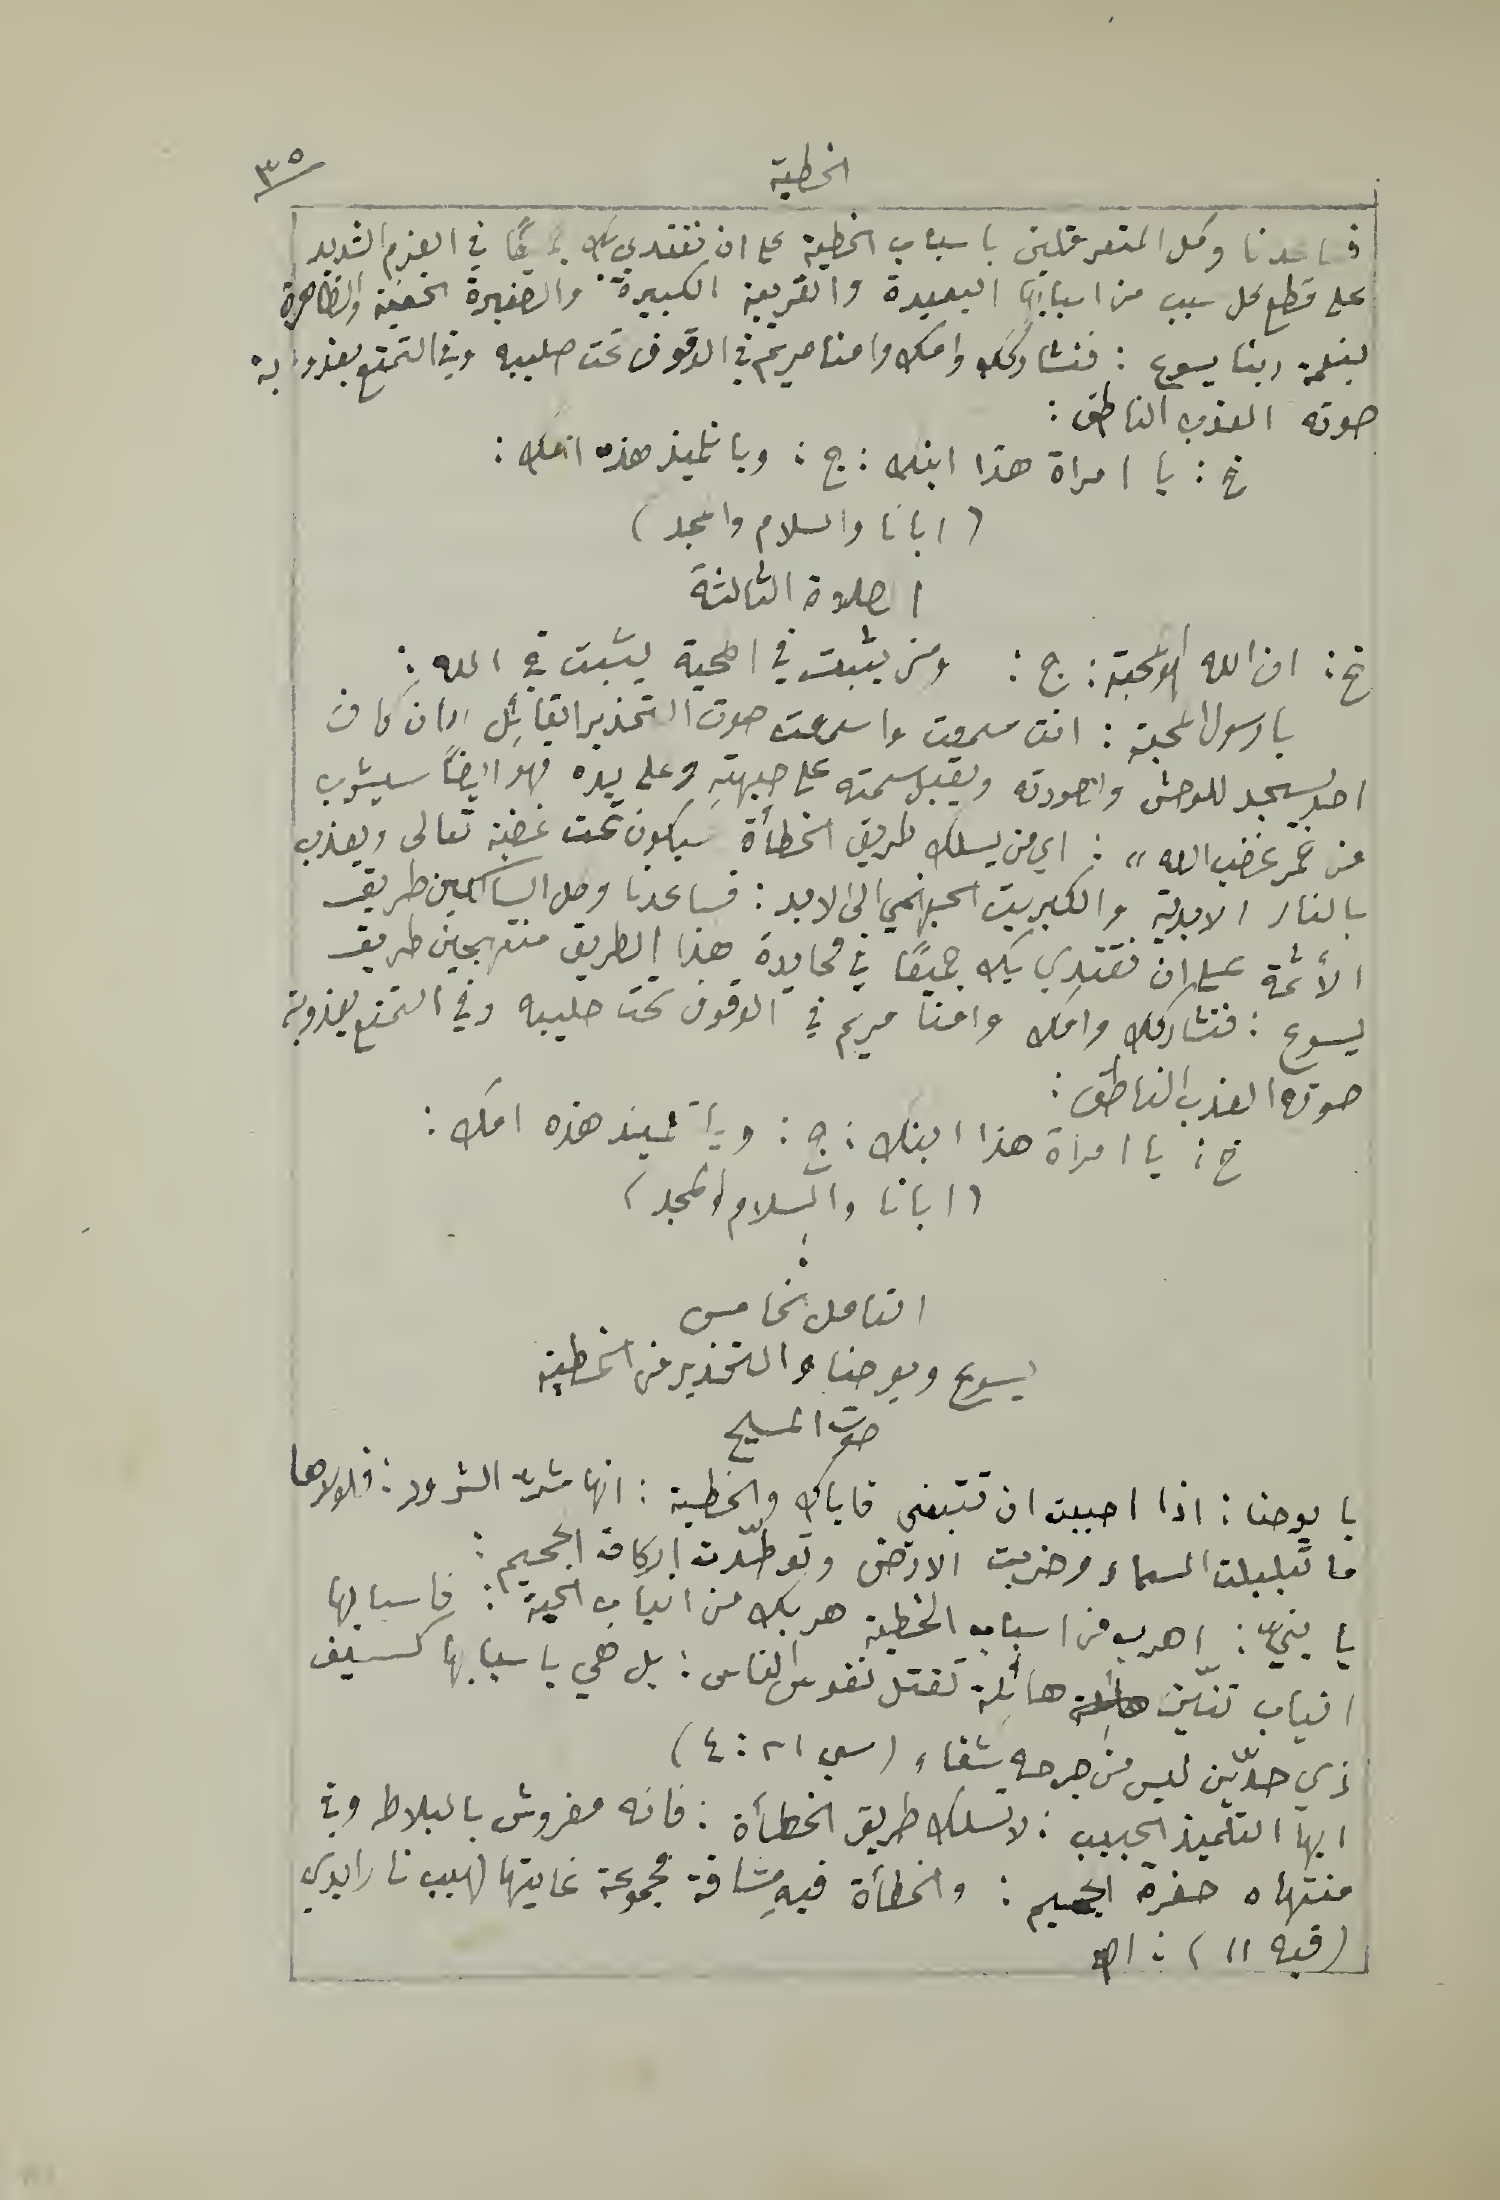 ٣٥
الخطية
فساعدنا وكل المتعرقلين باسباب الخطية على ان نقتدي بك جميعًا في العزم الشديد
على قطع كل سبب من اسبابها البعيدة والقريبة الكبيرة والصغيرة الخفية والظاهرة
بنعمة ربنا يسوع : فنشاركك وامك وامنا مريم في الوقوف تحت صليبه وفي التمتع بعذوبة
صوته العذب الناطق :
خ : يا امراة هذا ابنك : ج : ويا تلميذ هذه امك :
( ابانا والسلام والمجد )
الصلاة الثالثة
خ : ان الله هو المحبة : ج : ومن يثبت في المحبة يثبت في الله :
يا رسول المحبة : انت سمعت واسمعت صوت التحذير القائل ان كان
احد يسجد للوحش ولصورته ويقبل سمته على جبهتهِ وعلى يده فهو ايضًا سيشرب
من خمر غضب الله " : اي من يسلك طريق الخطأة سيكون تحت غضبه تعالى ويعذب
بالنار الابدية والكبريت الجهنمي الى الابد : فساعدنا وكل السالكين طريق
الأثمة على ان نقتدي بك جميعًا في محايدة هذا الطريق منتهجين طريق
يسوع : فنشاركك وامك وامنا مريم في الوقوف تحت صليبه وفي التمتع بعذوبة
صوته العذب الناطق :
خ : يا امراة هذا ابنك : ج : ويا تلميذ هذه امك :
( ابانا والسلام والمجد )
التامل الخامس
يسوع ويوحنا والتحذير من الخطية
صوت المسيح
يا يوحنا : اذا احببت ان تتبعني فاياك والخطية : انها شرّ الشرور : فلولاها
ما تبلبلت السماء وخربت الارض وتوطّدت اركان الجحيم :
يا بنيّ : اهرب من اسباب الخطية هربك من انياب الحية : فاسبابها
انياب تنّين هائلة تقتل نفوس الناس : بل هي باسبابها كسيف
ذي حدّين ليس من جرحه شفاء ( سي ٢١ : ٤ )
ايها التلميذ الحبيب : لا تسلك طريق الخطأة : فانه مفروش بالبلاط وفي
منتهاه حفرة الجحيم : والخطأة فيهِ مشاقة مجموعة غايتها لهيب نار ابدي
( فيه ١١ ) :